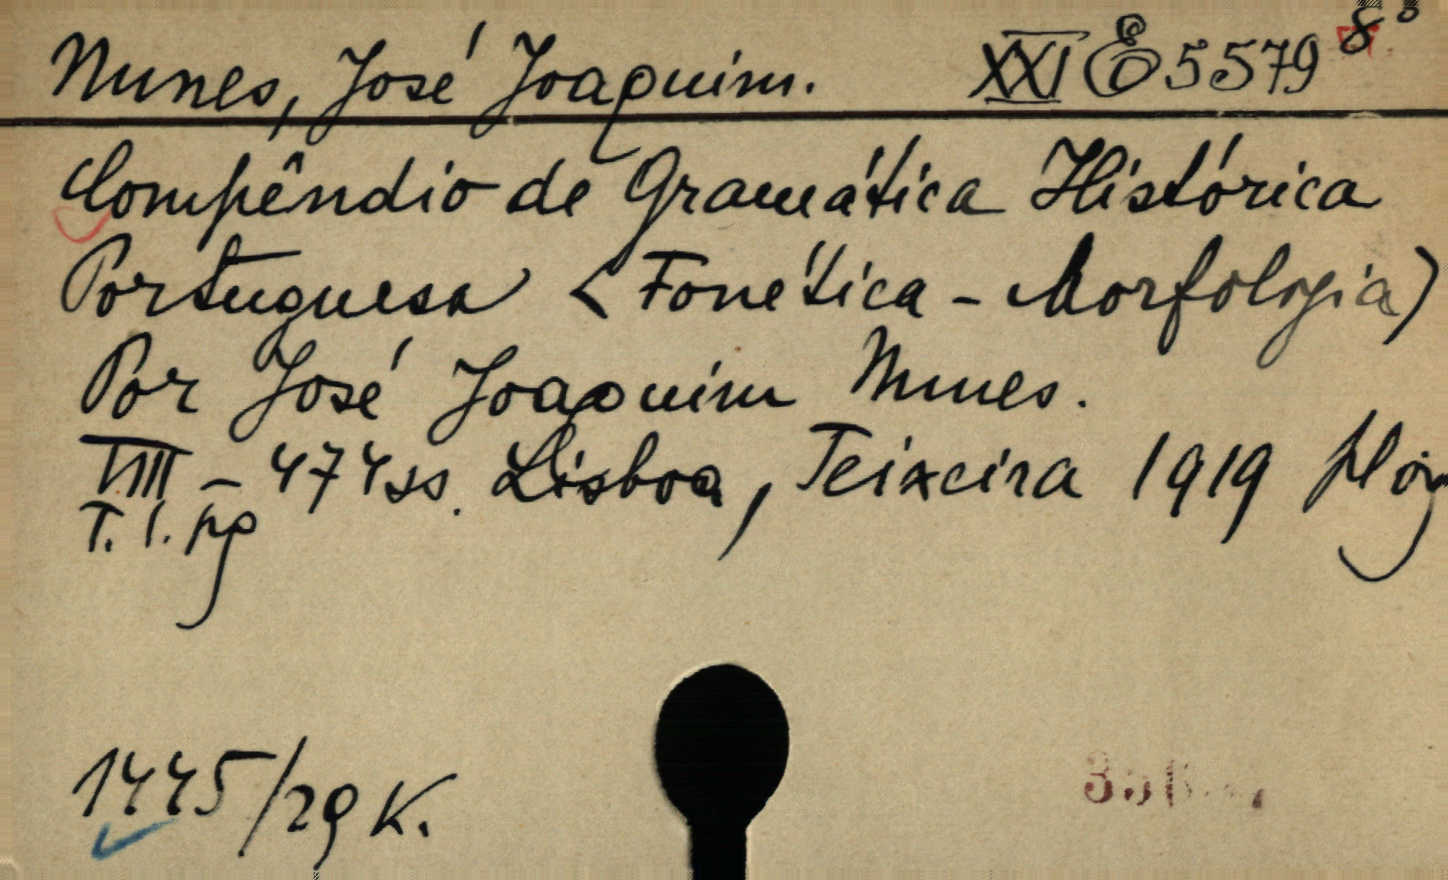 Nunes, José Joaquim. XXI E 5579 8°
Compêndio de Gramática Histórica
Portuguesa (Fonética - Morfologia)
Por José Joaquim Nunes.
VIII - 474 ss. Lisboa, Teixeira 1919
T. I. pg
1445/29 K.